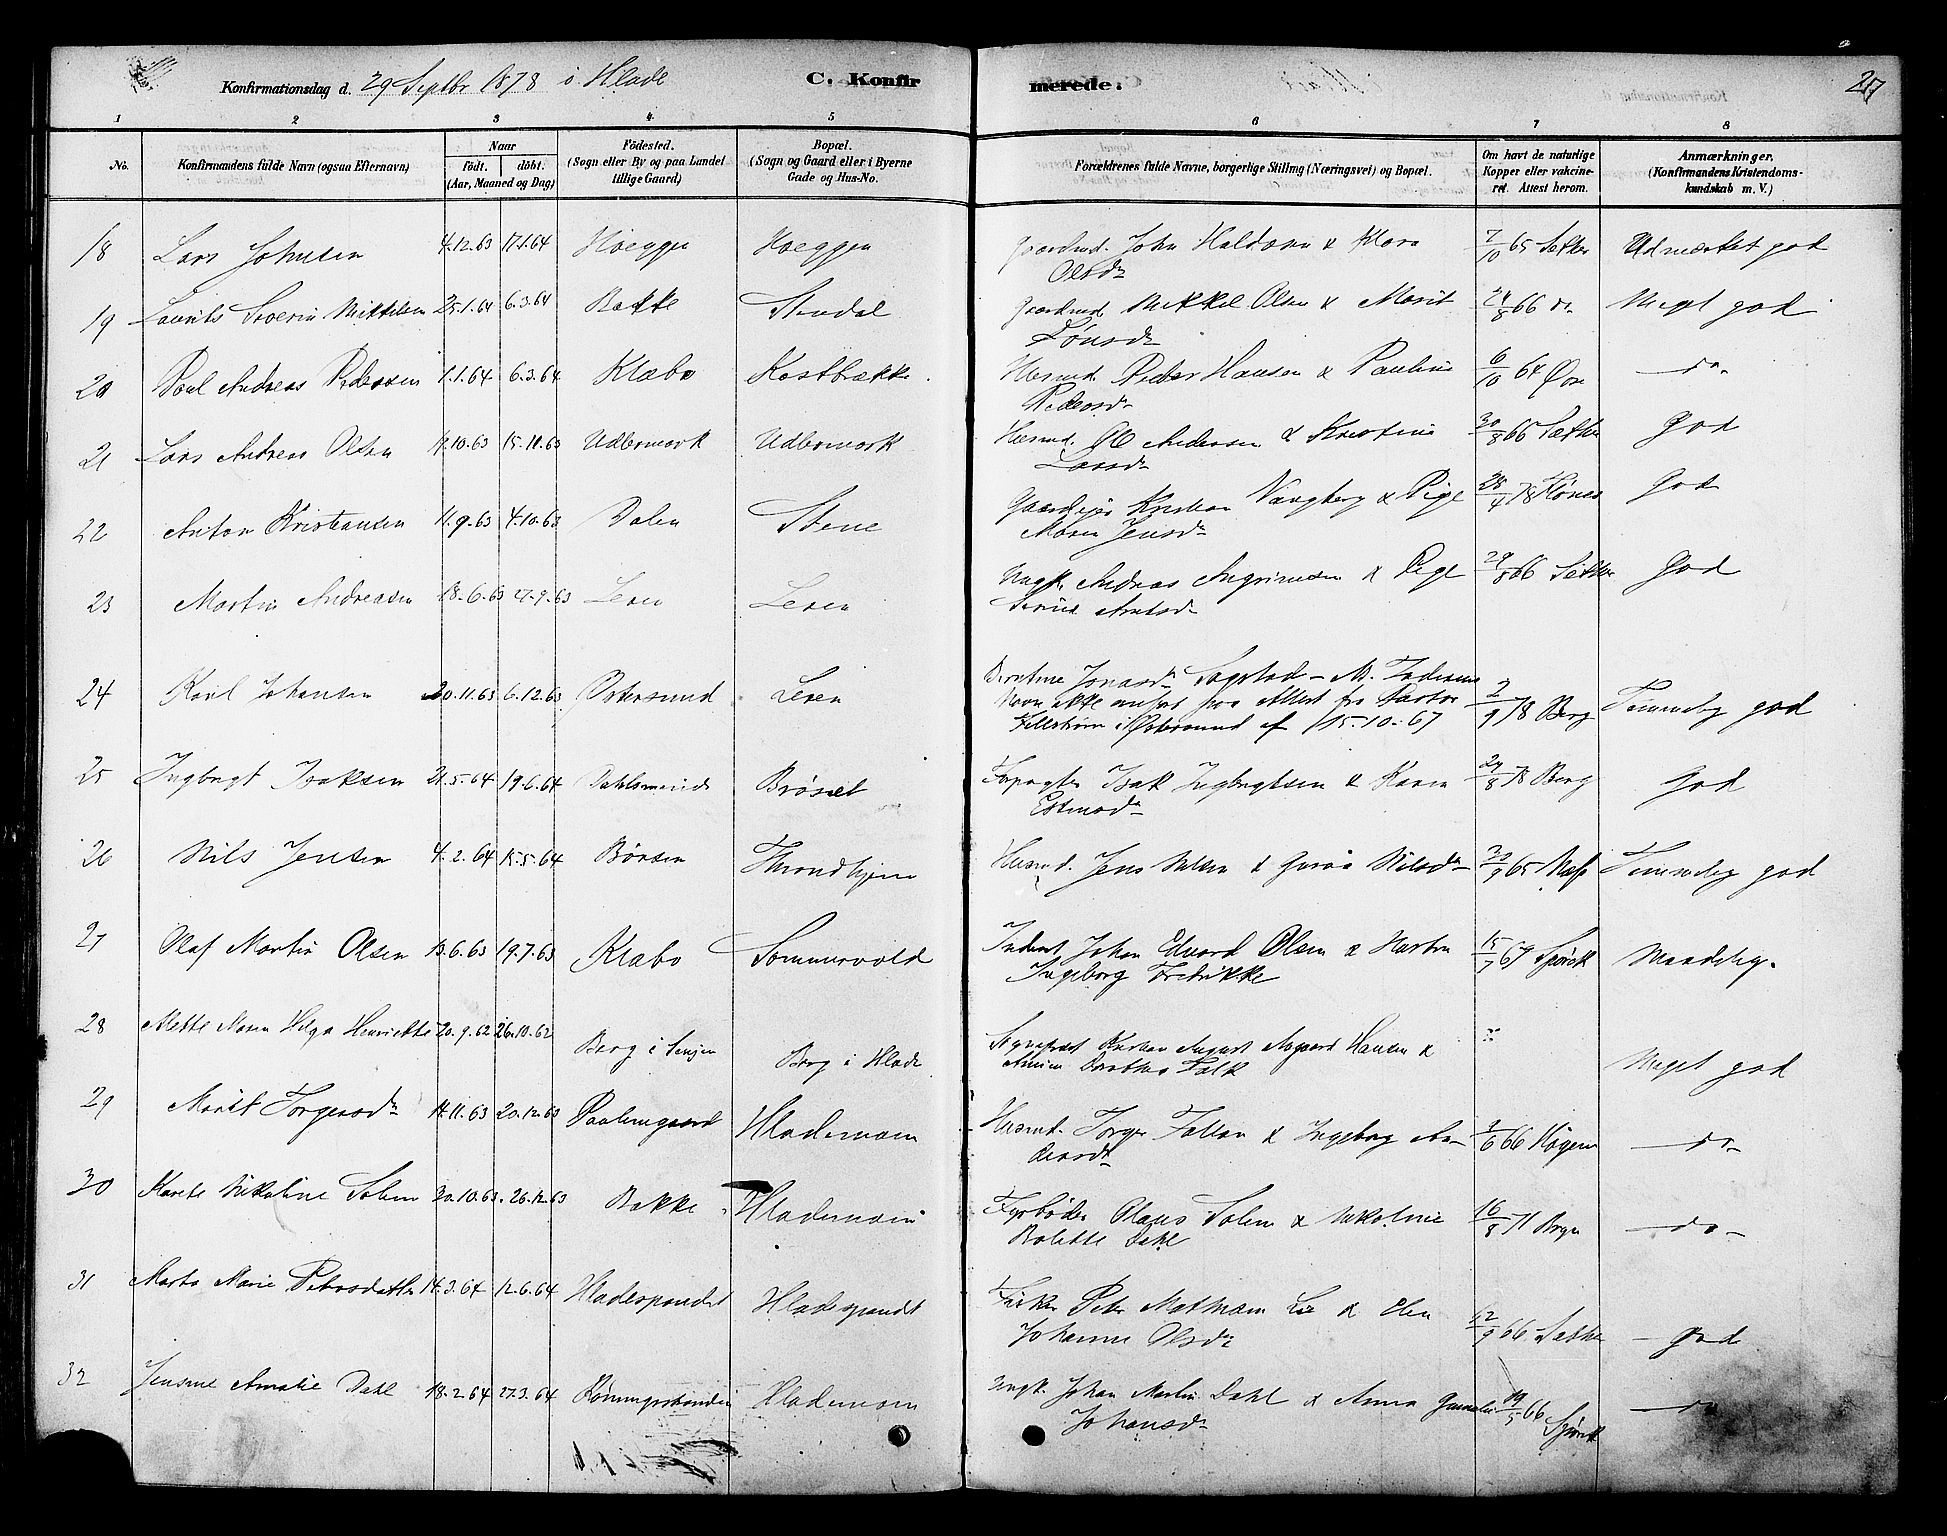 Konfirmationsdag d. 29 Septbr 1878 i Hlade C. Konfirmerede. 217
1 2 3 4 5 6 7 8
No. Konfirmandens fulde Navn (ogsaa Efternavn) Naar født. døbt. (Aar, Maaned og Dag) Fødested. (Sogn eller By og paa Landet tillige Gaard) Bopæl. (Sogn og Gaard eller i Byerne Gade og Hus-No. Forældrenes fulde Navne, borgerlige Stilling (Næringsvei) og Bopæl. Om havt de naturlige Kopper eller vakcineret. Attest herom. Anmærkninger. (Konfirmandens Kristendomskundskab m. V.)
18 Lars Johnsen 4.12.63 17.1.64 Hoeggen Hoeggen Gaardmd. John Haldosen & Klara
Olsdr 7/10 65 Sether Udmærket god
19 Laurits Severin Mikkelsen 25.1.64 6.3.64 Bakke Stendal Gaardmd. Mikkel Olsen & Marit
Lønsdr 24/8 66 do Meget god
20 Paul Andreas Pedersen 1.1.64 6.3.64 Klæbo Kastbrække Husmd. Peder Hansen & Pauline
Pedersdr 6/10 64 do
21 Lars Andreas Olsen 15.11.63 Udlermark Udlermark Husmd. Ole Andersen & Kirstine
Larsdr 30/8 66 Sæther God
22 Anton Kristiansen 11.9.63 4.10.63 Dalen Stene Kristian Vangberg & Pige
Maren Jensdr 28/4 78 God
23 Martin Andreasen 18.6.63 27.9.63 Leren Leren Ungk. Andreas Angrimsen & Pige
Arntsdr 29/8 66 Sether God
24 Karl Johansen 20.11.63 6.12.63 Østersund Leren Berntine Jonasdr Sagstad
Navn ikke anført paa Attest fra Pastor
i Østersund af 15.10.67 2/9 78 Berg Temmelig god
25 Ingbrigt Isaksen 21.5.64 19.6.64 Brøset Forpagter Isak Ingbrigtsen & Karen
Estensdr 24/8 78 Berg God
26 Nils Jensen 4.2.64 15.5.64 Børsen Throndhjem Husmd. Jens Nilsen & Guroe Nilsdr 65 Temmelig god
27 Olaf Martin Olsen 13.6.63 19.7.63 Klæbo Sommervold Inderst Johan Edvard Olsen & Hustru
Ingeborg Fredrikke 15/7 67 Maadelig.
28 Mette Maren Helga Henriette 20.9.62 26.10.62 Berg i Senjen Berg i Hlade Kristian August Aagaard Hansen &
Dorothea Falk Meget god
29 Marit Torgersdr 14.11.63 20.12.63 Hlademoen Husmd. Torger Follan & Ingeborg An-
dersdr 66 do
30 Karete Nikoline Solem 30.10.63. 26.12.63 Bakke Hlademoen Fyrbøder Olaus Solem & Nikoline
Bolette Dahl 16/8 71 do
31 Marta Marie Petersdatter 14.3.64 12.6.64 Hladespandet Hladespandt Fisker Peter Mathisen Lie & Elen
Johanne Olsdr 12/9 66 Sether god
32 Jensine Amalie Dahl 18.2.64 27.3.64 Hlademoen Ungk. Johan Martin Dahl & Anna
Johansdr 66 do